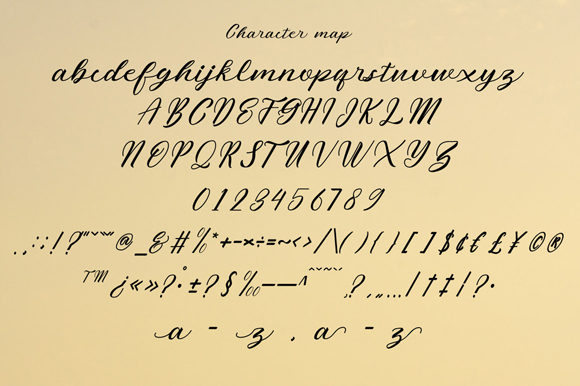 Character map
abcdefghijklmnopqrstuvwxyz
ABCDEFGHIJKLM
NOPQRSTUVWXYZ
0123456789
.,:;!?"'@_&#%*+-×÷=~<>/\(){}[]$¢€£¥©®
™¿«»?°±?§‰–—^?‚„…|†‡|?·
a - z . a - z